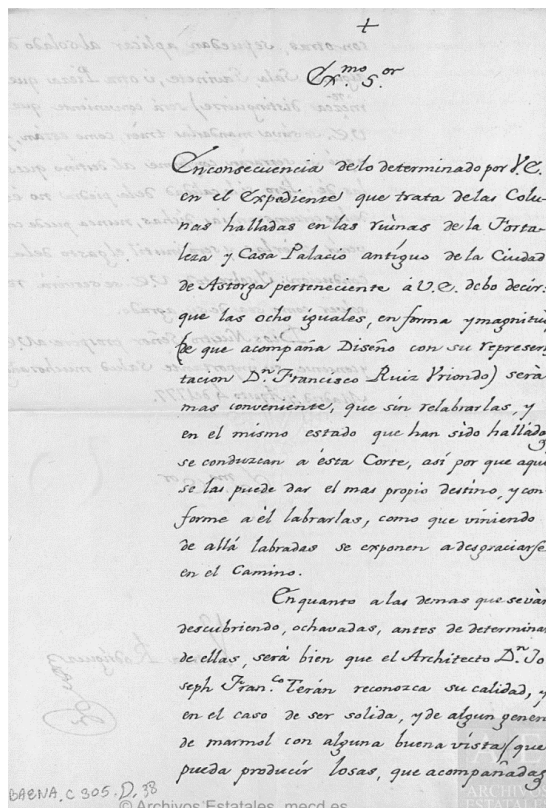 +
Ex.mo S.or
En consecuencia de lo determinado por V.E.
en el Expediente que trata de las Colu-
nas halladas en las ruinas de la Forta-
leza y Casa Palacio antiguo de la Ciudad
de Astorga perteneciente à V.E. debo decir:
que las ocho iguales, en forma y magnitud
(de que acompaña Diseño con su represen-
tacion D.n Francisco Ruiz Vriondo) serà
mas conveniente, que sin relabrarlas, y
en el mismo estado que han sido halladas
se conduzcan a èsta Corte, asì por que aquì
se las puede dar el mas propio destino, y con
forme a èl labrarlas, como que viniendo
de allà labradas se exponen a desgraciarse
en el Camino.
En quanto a las demas que se vàn
descubriendo, ochavadas, antes de determinar
de ellas, serà bien que el Architecto D.n Jo
seph Fran.co Teràn reconozca su calidad, y
en el caso de ser solida, y de algun genero
de marmol con alguna buena vista (que
pueda producir losas, que acompañadas
BAENA. C 305. D. 38
© Archivos Estatales, mecd.es
ARCHIVOS
ESTATALES